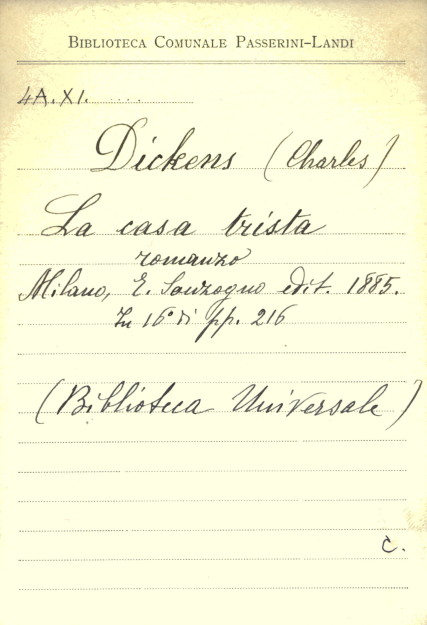 BIBLIOTECA COMUNALE PASSERINI-LANDI
4A.XI.
Dickens (Charles)
La casa trista
romanzo
Milano, E. Sonzogno edit. 1885.
In 16° di pp. 216
(Biblioteca Universale)
C.